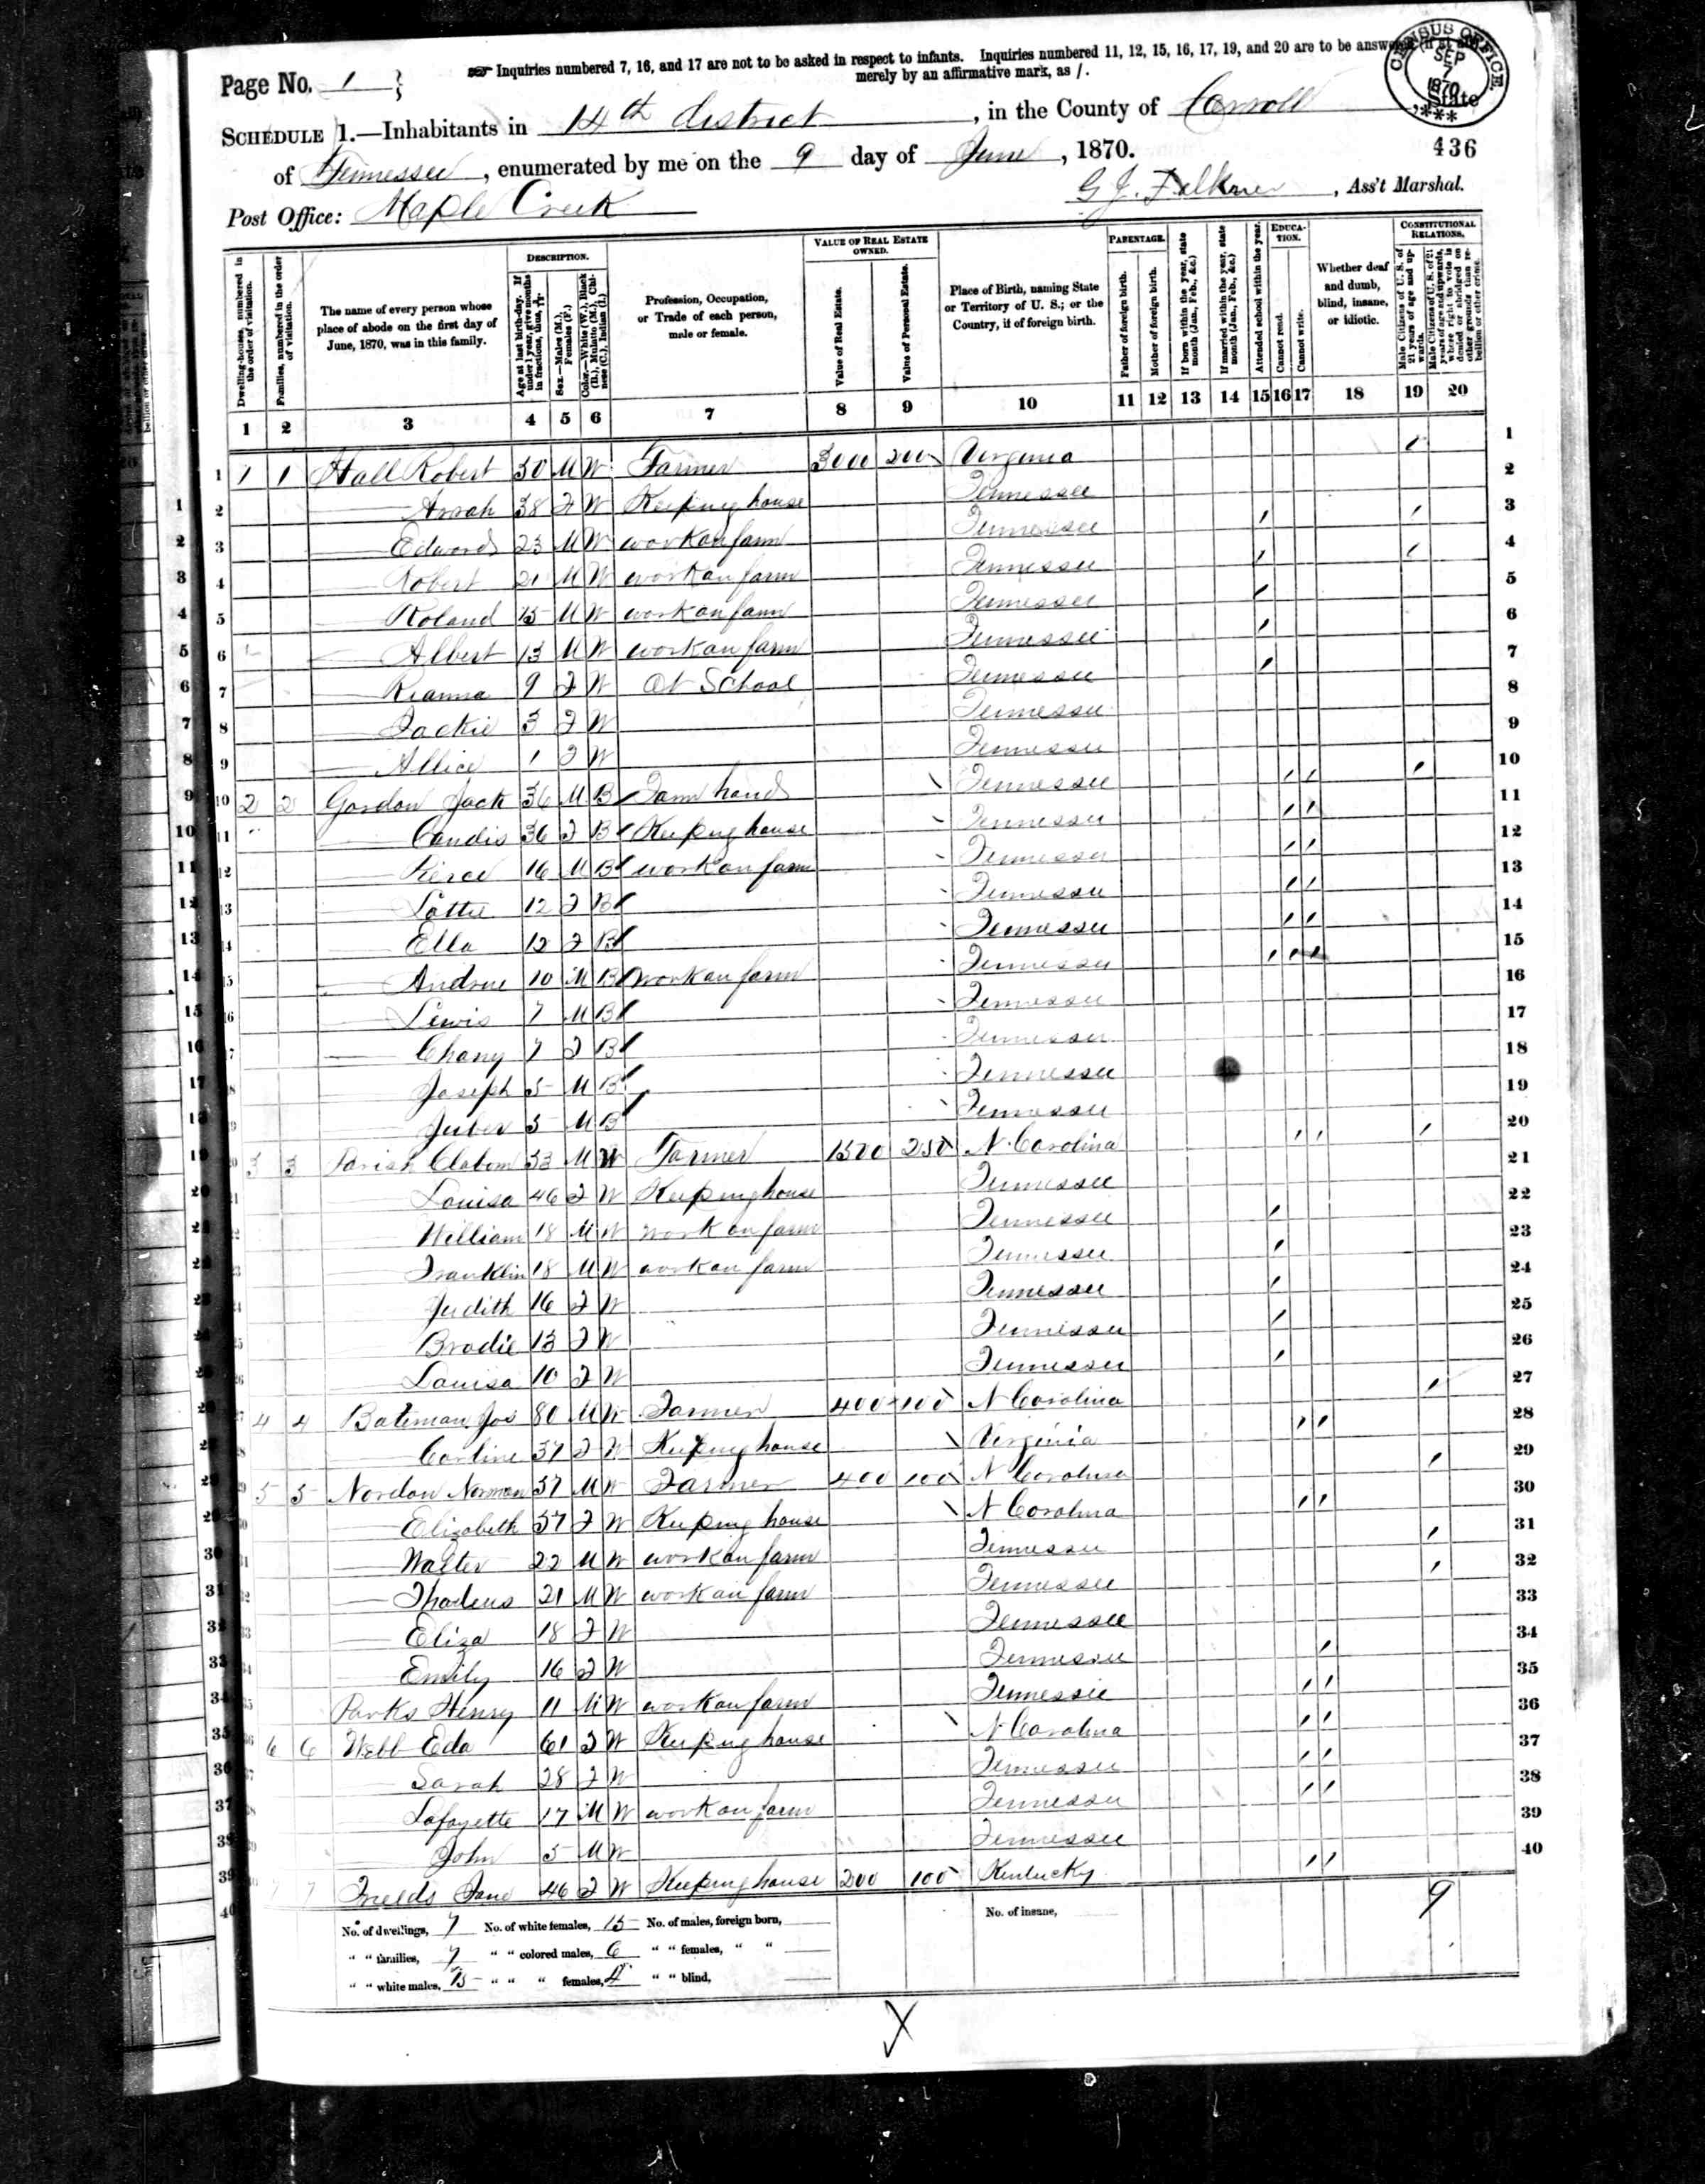 Page No. 1
Inquiries numbered 7, 16, and 17 are not to be asked in respect to infants. Inquiries numbered 11, 12, 15, 16, 17, 19, and 20 are to be answered
merely by an affirmative mark, as /.
CENSUS OFFICE SEP 7 1870
SCHEDULE 1.—Inhabitants in 14th district, in the County of Carroll, State
of Tennessee, enumerated by me on the 9 day of June, 1870.
436
Post Office: Maple Creek
G J. Falkner, Ass't Marshal.
Dwelling-houses, numbered in the order of visitation.
Families, numbered in the order of visitation.
The name of every person whose place of abode on the first day of June, 1870, was in this family.
DESCRIPTION.
Age at last birth-day. If under 1 year, give months in fractions, thus,
Sex.—Males (M.), Females (F.)
Color.—White (W.), Black (B.), Mulatto (M.), Chinese (C.), Indian (I.)
Profession, Occupation, or Trade of each person, male or female.
VALUE OF REAL ESTATE OWNED.
Value of Real Estate.
Value of Personal Estate.
Place of Birth, naming State or Territory of U. S.; or the Country, if of foreign birth.
PARENTAGE.
Father of foreign birth.
Mother of foreign birth.
If born within the year, state month (Jan., Feb., &c.)
If married within the year, state month (Jan., Feb., &c.)
Attended school within the year.
EDUCATION.
Cannot read.
Cannot write.
Whether deaf and dumb, blind, insane, or idiotic.
CONSTITUTIONAL RELATIONS.
Male Citizens of U. S. of 21 years of age and upwards.
Male Citizens of U. S. of 21 years of age and upwards, where right to vote is denied or abridged on other grounds than rebellion or other crime.
1 2 3 4 5 6 7 8 9 10 11 12 13 14 15 16 17 18 19 20
1 1 1 Hall Robert 50 M W Farmer 3000 200 Virginia / 1
2 — Arrah 38 F W Keeping house Tennessee 2
3 — Edward 23 M W work on farm Tennessee / / 3
4 — Robert 21 M W work on farm Tennessee / / 4
5 — Roland 15 M W work on farm Tennessee / 5
6 — Albert 13 M W work on farm Tennessee / 6
7 — Rianna 9 F W At School Tennessee / 7
8 — Jackie 3 F W Tennessee 8
9 — Allice 1 F W Tennessee 9
10 2 2 Gordon Jack 36 M B Farm hand Tennessee / / / 10
11 — Candis 36 F B Keeping house Tennessee / / 11
12 — Pierce 16 M B work on farm Tennessee / / 12
13 — Lottie 12 F B Tennessee / / 13
14 — Ella 12 F B Tennessee / / 14
15 — Andrew 10 M B work on farm Tennessee / / / 15
16 — Lewis 7 M B Tennessee 16
17 — Chany 7 F B Tennessee 17
18 — Joseph 5 M B Tennessee 18
19 — Juber 5 M B Tennessee 19
20 3 3 Parish Claborn 53 M W Farmer 1500 250 N. Carolina / / / 20
21 Louisa 46 F W Keeping house Tennessee 21
22 William 18 M W work on farm Tennessee / 22
23 Franklin 18 M W work on farm Tennessee / 23
24 Judith 16 F W Tennessee / 24
25 Brodie 13 F W Tennessee / 25
26 Louisa 10 F W Tennessee / 26
27 4 4 Bateman Jos 80 M W Farmer 400 100 N Carolina / 27
28 Carline 37 F W Keeping house Virginia / / 28
29 5 5 Nordon Norman 57 M W Farmer 400 100 N Carolina / 29
30 — Elizabeth 57 F W Keeping house N Carolina / / 30
31 — Walter 22 M W work on farm Tennessee / 31
32 — Thadeus 21 M W work on farm Tennessee / 32
33 — Eliza 18 F W Tennessee 33
34 — Emily 16 F W Tennessee / 34
35 Parks Henry 11 M W work on farm Tennessee / / 35
36 6 6 Webb Eda 61 F W Keeping house N. Carolina / / 36
37 Sarah 28 F W Tennessee / / 37
38 Lafayette 17 M W work on farm Tennessee / / 38
39 John 5 M W Tennessee 39
40 7 7 Fields Jane 46 F W Keeping house 200 100 Kentucky / / 40
No. of dwellings, 7 No. of white females, 15 No. of males, foreign born, No. of insane, 9
" " families, 7 " " colored males, 6 " " females, " "
" " white males, 15 " " " females, 4 " " blind,
X